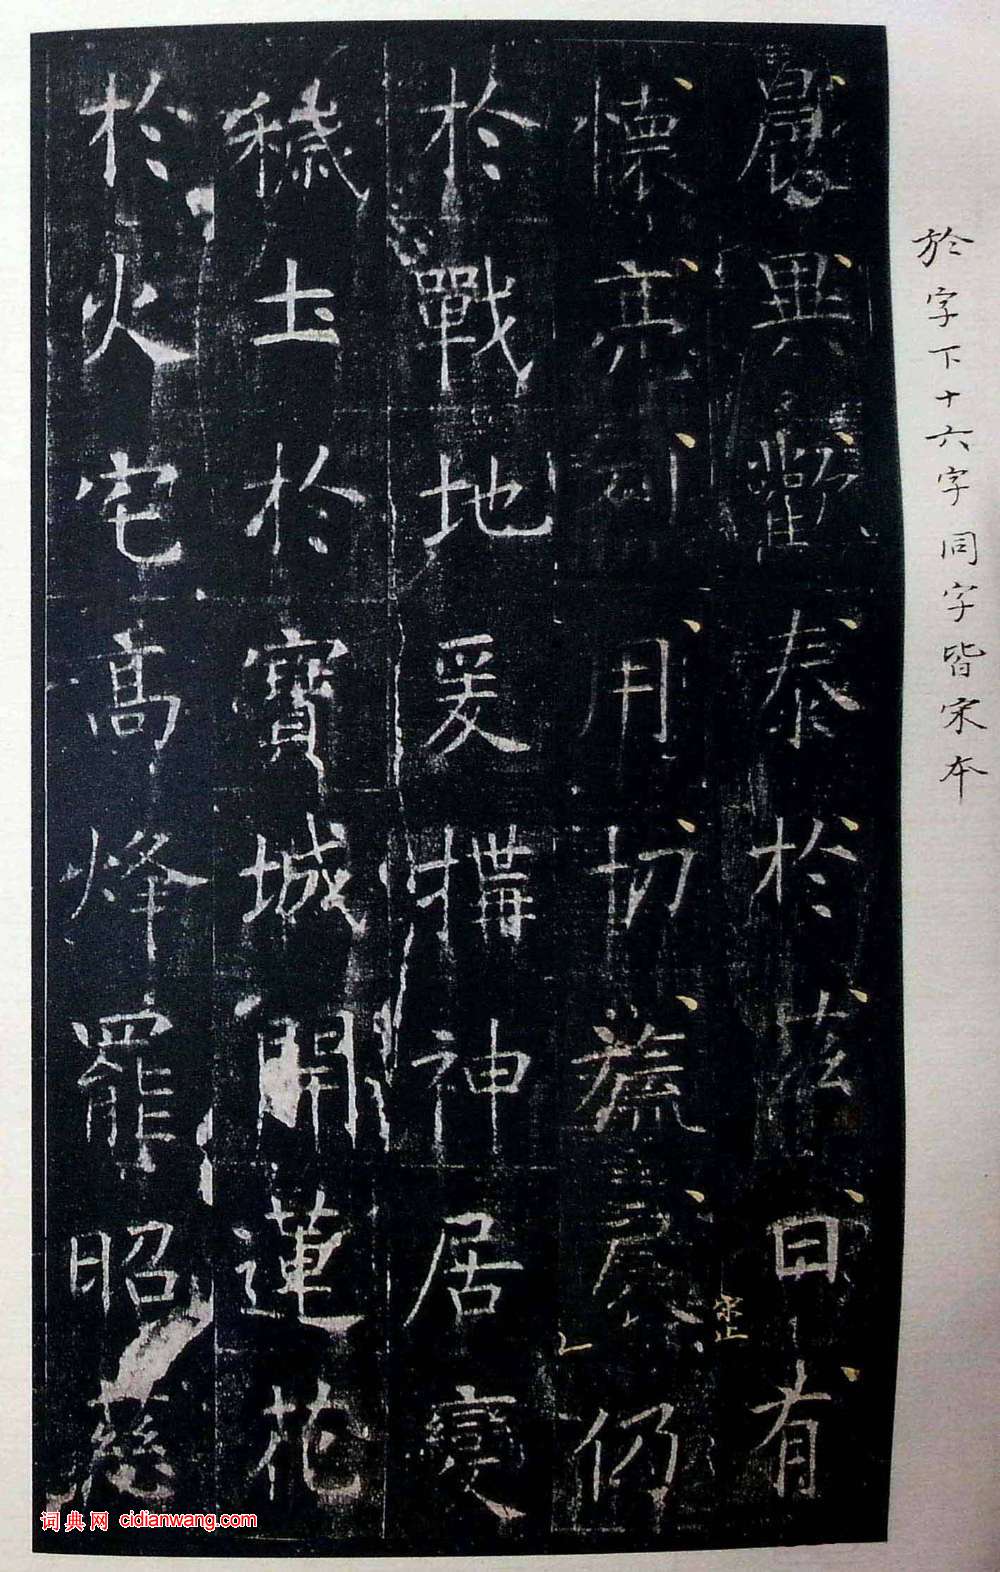 於字下十六字同字皆宋本
晨異歡泰於茲日有
懷亮用切旒扆仍
於戰地爰構神居變
穢土於寶城開蓮花
於火宅高烽罷昭慈
宋止
词典网 cidianwang.com